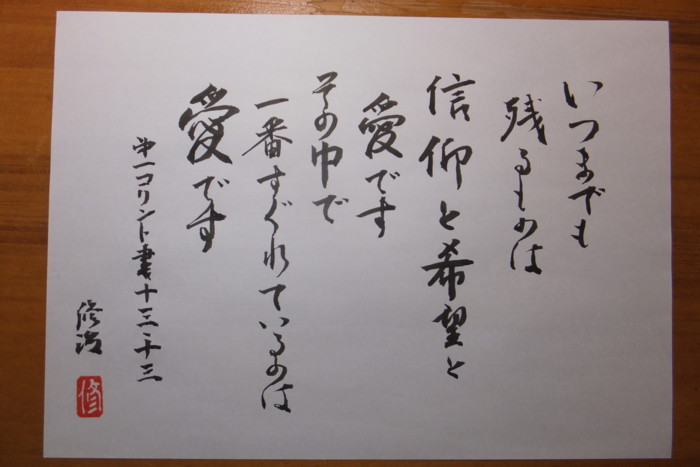 いつまでも
残るものは
信仰と希望と
愛です
その中で
一番すぐれているのは
愛です
第一コリント書十三・十三
修治
修